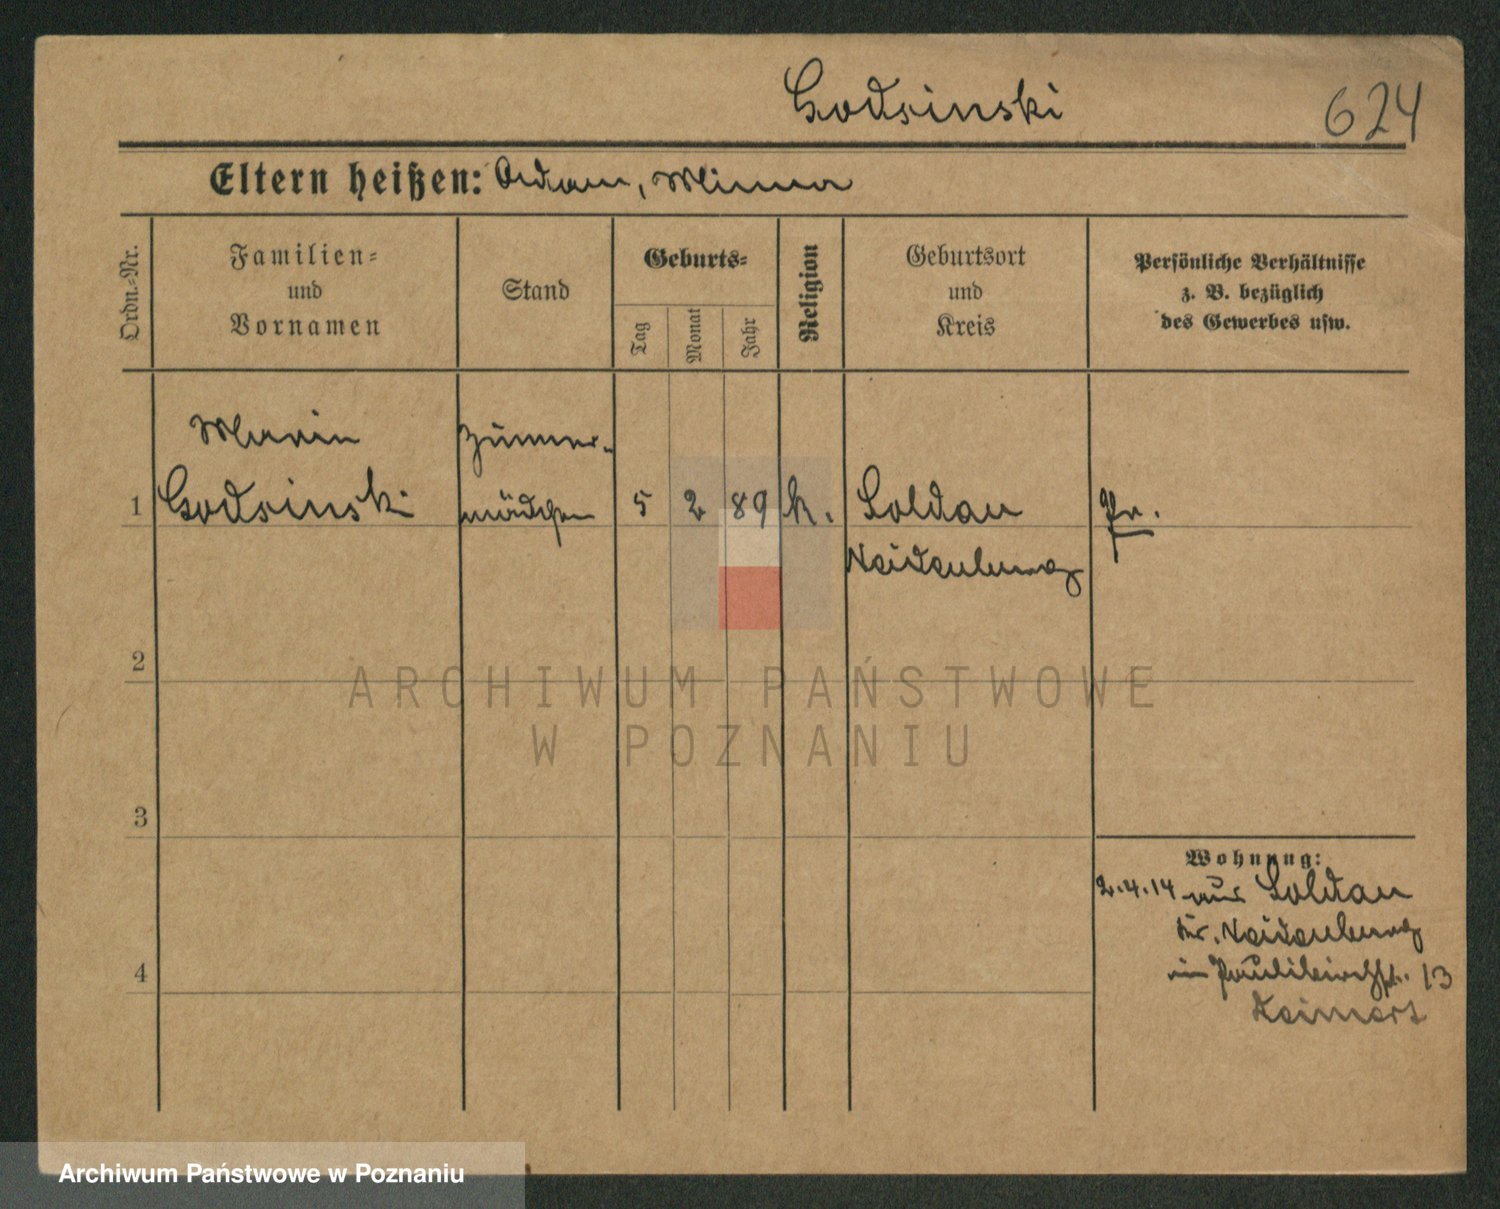 Godsinski
624
Eltern heißen: Adam, Minna
Ordn.-Nr.
Familien-
und
Vornamen
Stand
Geburts-
Tag
Monat
Jahr
Religion
Geburtsort
und
Kreis
Persönliche Verhältnisse
z. B. bezüglich
des Gewerbes usw.
Marie
Zimmer-
1 Godsinski mädchen 5 2 89 k. Soldau Pr.
Neidenburg
2
3
4
Wohnung:
2.4.14 aus Soldau
Kr. Neidenburg
in Paulikirchstr. 13
ARCHIWUM PAŃSTWOWE
W POZNANIU
Archiwum Państwowe w Poznaniu